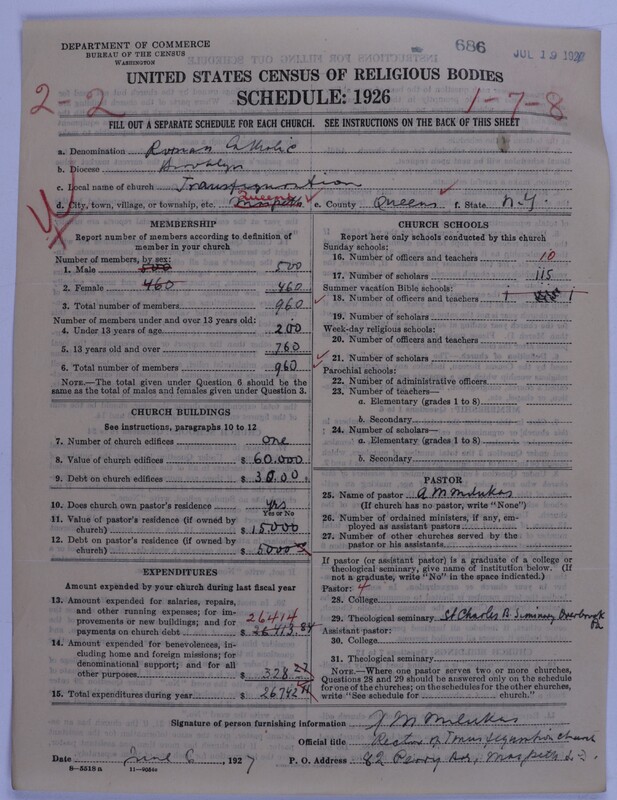 DEPARTMENT OF COMMERCE
BUREAU OF THE CENSUS
WASHINGTON
686
JUL 19 1927
UNITED STATES CENSUS OF RELIGIOUS BODIES
SCHEDULE: 1926
2-2
1-7-8
FILL OUT A SEPARATE SCHEDULE FOR EACH CHURCH. SEE INSTRUCTIONS ON THE BACK OF THIS SHEET
a. Denomination Roman Catholic
b. Diocese Brooklyn
c. Local name of church Transfiguration
d. City, town, village, or township, etc. Maspeth Queens e. County Queens f. State N.Y.
MEMBERSHIP
Report number of members according to definition of member in your church
Number of members, by sex:
1. Male 500 500
2. Female 460 460
3. Total number of members 960
Number of members under and over 13 years old:
4. Under 13 years of age 200
5. 13 years old and over 760
6. Total number of members 960
NOTE.—The total given under Question 6 should be the same as the total of males and females given under Question 3.
CHURCH BUILDINGS
See instructions, paragraphs 10 to 12
7. Number of church edifices one
8. Value of church edifices $ 60.000
9. Debt on church edifices $
10. Does church own pastor's residence yes
Yes or No
11. Value of pastor's residence (if owned by church) $ 15000
12. Debt on pastor's residence (if owned by church) $ 5000
EXPENDITURES
Amount expended by your church during last fiscal year
13. Amount expended for salaries, repairs, and other running expenses; for improvements or new buildings; and for payments on church debt 26414 $ 26413.84
14. Amount expended for benevolences, including home and foreign missions; for denominational support; and for all other purposes $ 328.27
15. Total expenditures during year $ 26742
CHURCH SCHOOLS
Report here only schools conducted by this church
Sunday schools:
16. Number of officers and teachers 10
17. Number of scholars 115
Summer vacation Bible schools:
18. Number of officers and teachers
19. Number of scholars
Week-day religious schools:
20. Number of officers and teachers
21. Number of scholars
Parochial schools:
22. Number of administrative officers
23. Number of teachers—
a. Elementary (grades 1 to 8)
b. Secondary
24. Number of scholars—
a. Elementary (grades 1 to 8)
b. Secondary
PASTOR
25. Name of pastor
(If church has no pastor, write "None")
26. Number of ordained ministers, if any, employed as assistant pastors
27. Number of other churches served by the pastor or his assistants
If pastor (or assistant pastor) is a graduate of a college or theological seminary, give name of institution below. (If not a graduate, write "No" in the space indicated.)
Pastor: 4
28. College
29. Theological seminary St Charles B. Seminary Overbrook Pa
Assistant pastor:
30. College
31. Theological seminary
NOTE.—Where one pastor serves two or more churches, Questions 28 and 29 should be answered only on the schedule for one of the churches; on the schedules for the other churches, write "See schedule for church."
Signature of person furnishing information
Official title Rector of Transfiguration church
Date June 6, 1927 P. O. Address 82 Perry Ave, Maspeth L.I.
8—5518a 11—9054a